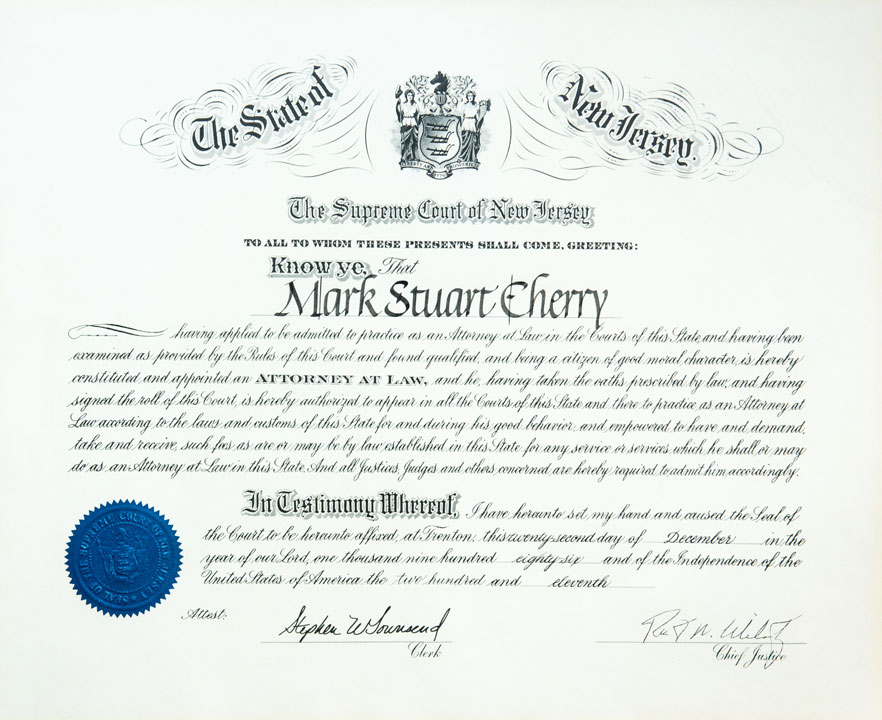 The State of New Jersey.
LIBERTY AND PROSPERITY
1776
The Supreme Court of New Jersey
TO ALL TO WHOM THESE PRESENTS SHALL COME, GREETING:
Know ye, That
Mark Stuart Cherry
having applied to be admitted to practice as an Attorney at Law in the Courts of this State and having been
examined as provided by the Rules of this Court and found qualified, and being a citizen of good moral character, is hereby
constituted and appointed an ATTORNEY AT LAW, and he, having taken the oaths prescribed by law, and having
signed the roll of this Court, is hereby authorized to appear in all the Courts of this State and there to practice as an Attorney at
Law according to the laws and customs of this State for and during his good behavior, and empowered to have and demand,
take and receive, such fees as are or may be by law established in this State for any service or services which he shall or may
do as an Attorney at Law in this State. And all Justices, Judges and others concerned are hereby required to admit him accordingly.
In Testimony Whereof, I have hereunto set my hand and caused the Seal of
the Court to be hereunto affixed, at Trenton, this twenty second day of December in the
year of our Lord, one thousand nine hundred eighty-six and of the Independence of the
United States of America the two hundred and eleventh
SEAL OF THE SUPREME COURT OF NEW JERSEY
Attest:
Stephen W Townsend
Clerk
Chief Justice